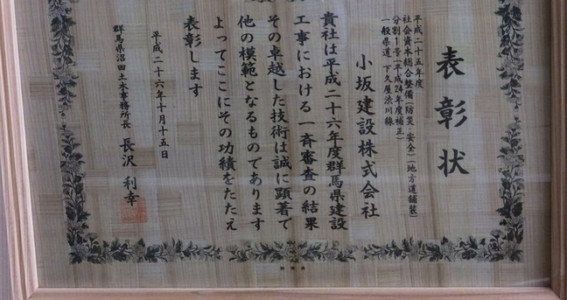 表彰状
平成二十五年度
社会資本総合整備(防災・安全)(地方道舗装)
分割1号(平成24年度補正)
一般県道 下久屋渋川線
小坂建設株式会社
貴社は平成二十六年度群馬県建設
工事における一斉審査の結果
その卓越した技術は誠に顕著で
他の模範となるものであります
よってここにその功績をたたえ
表彰します
平成二十六年十月十五日
群馬県沼田土木事務所長 長沢利幸